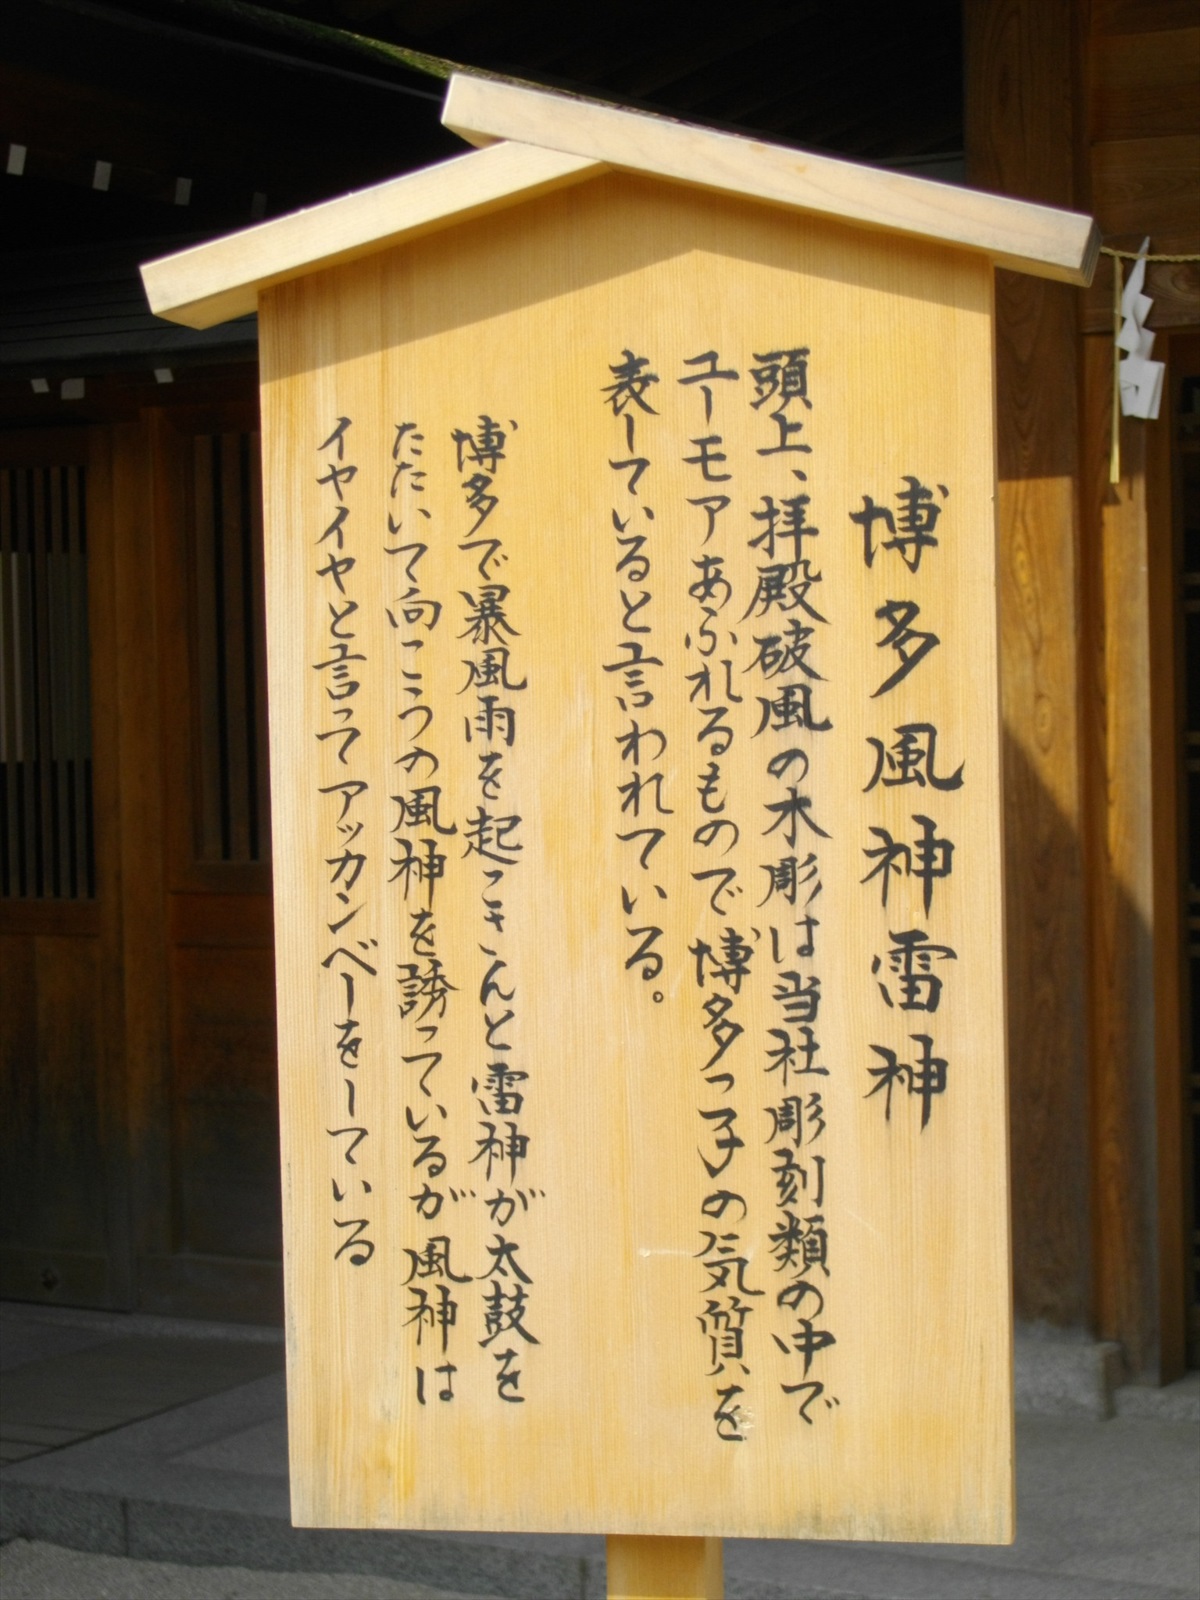 博多風神雷神
頭上、拝殿破風の木彫は当社彫刻類の中で
ユーモアあふれるもので博多っ子の気質を
表していると言われている。
博多で暴風雨を起こさんと雷神が太鼓を
たたいて向こうの風神を誘っているが風神は
イヤイヤと言ってアッカンベーをしている